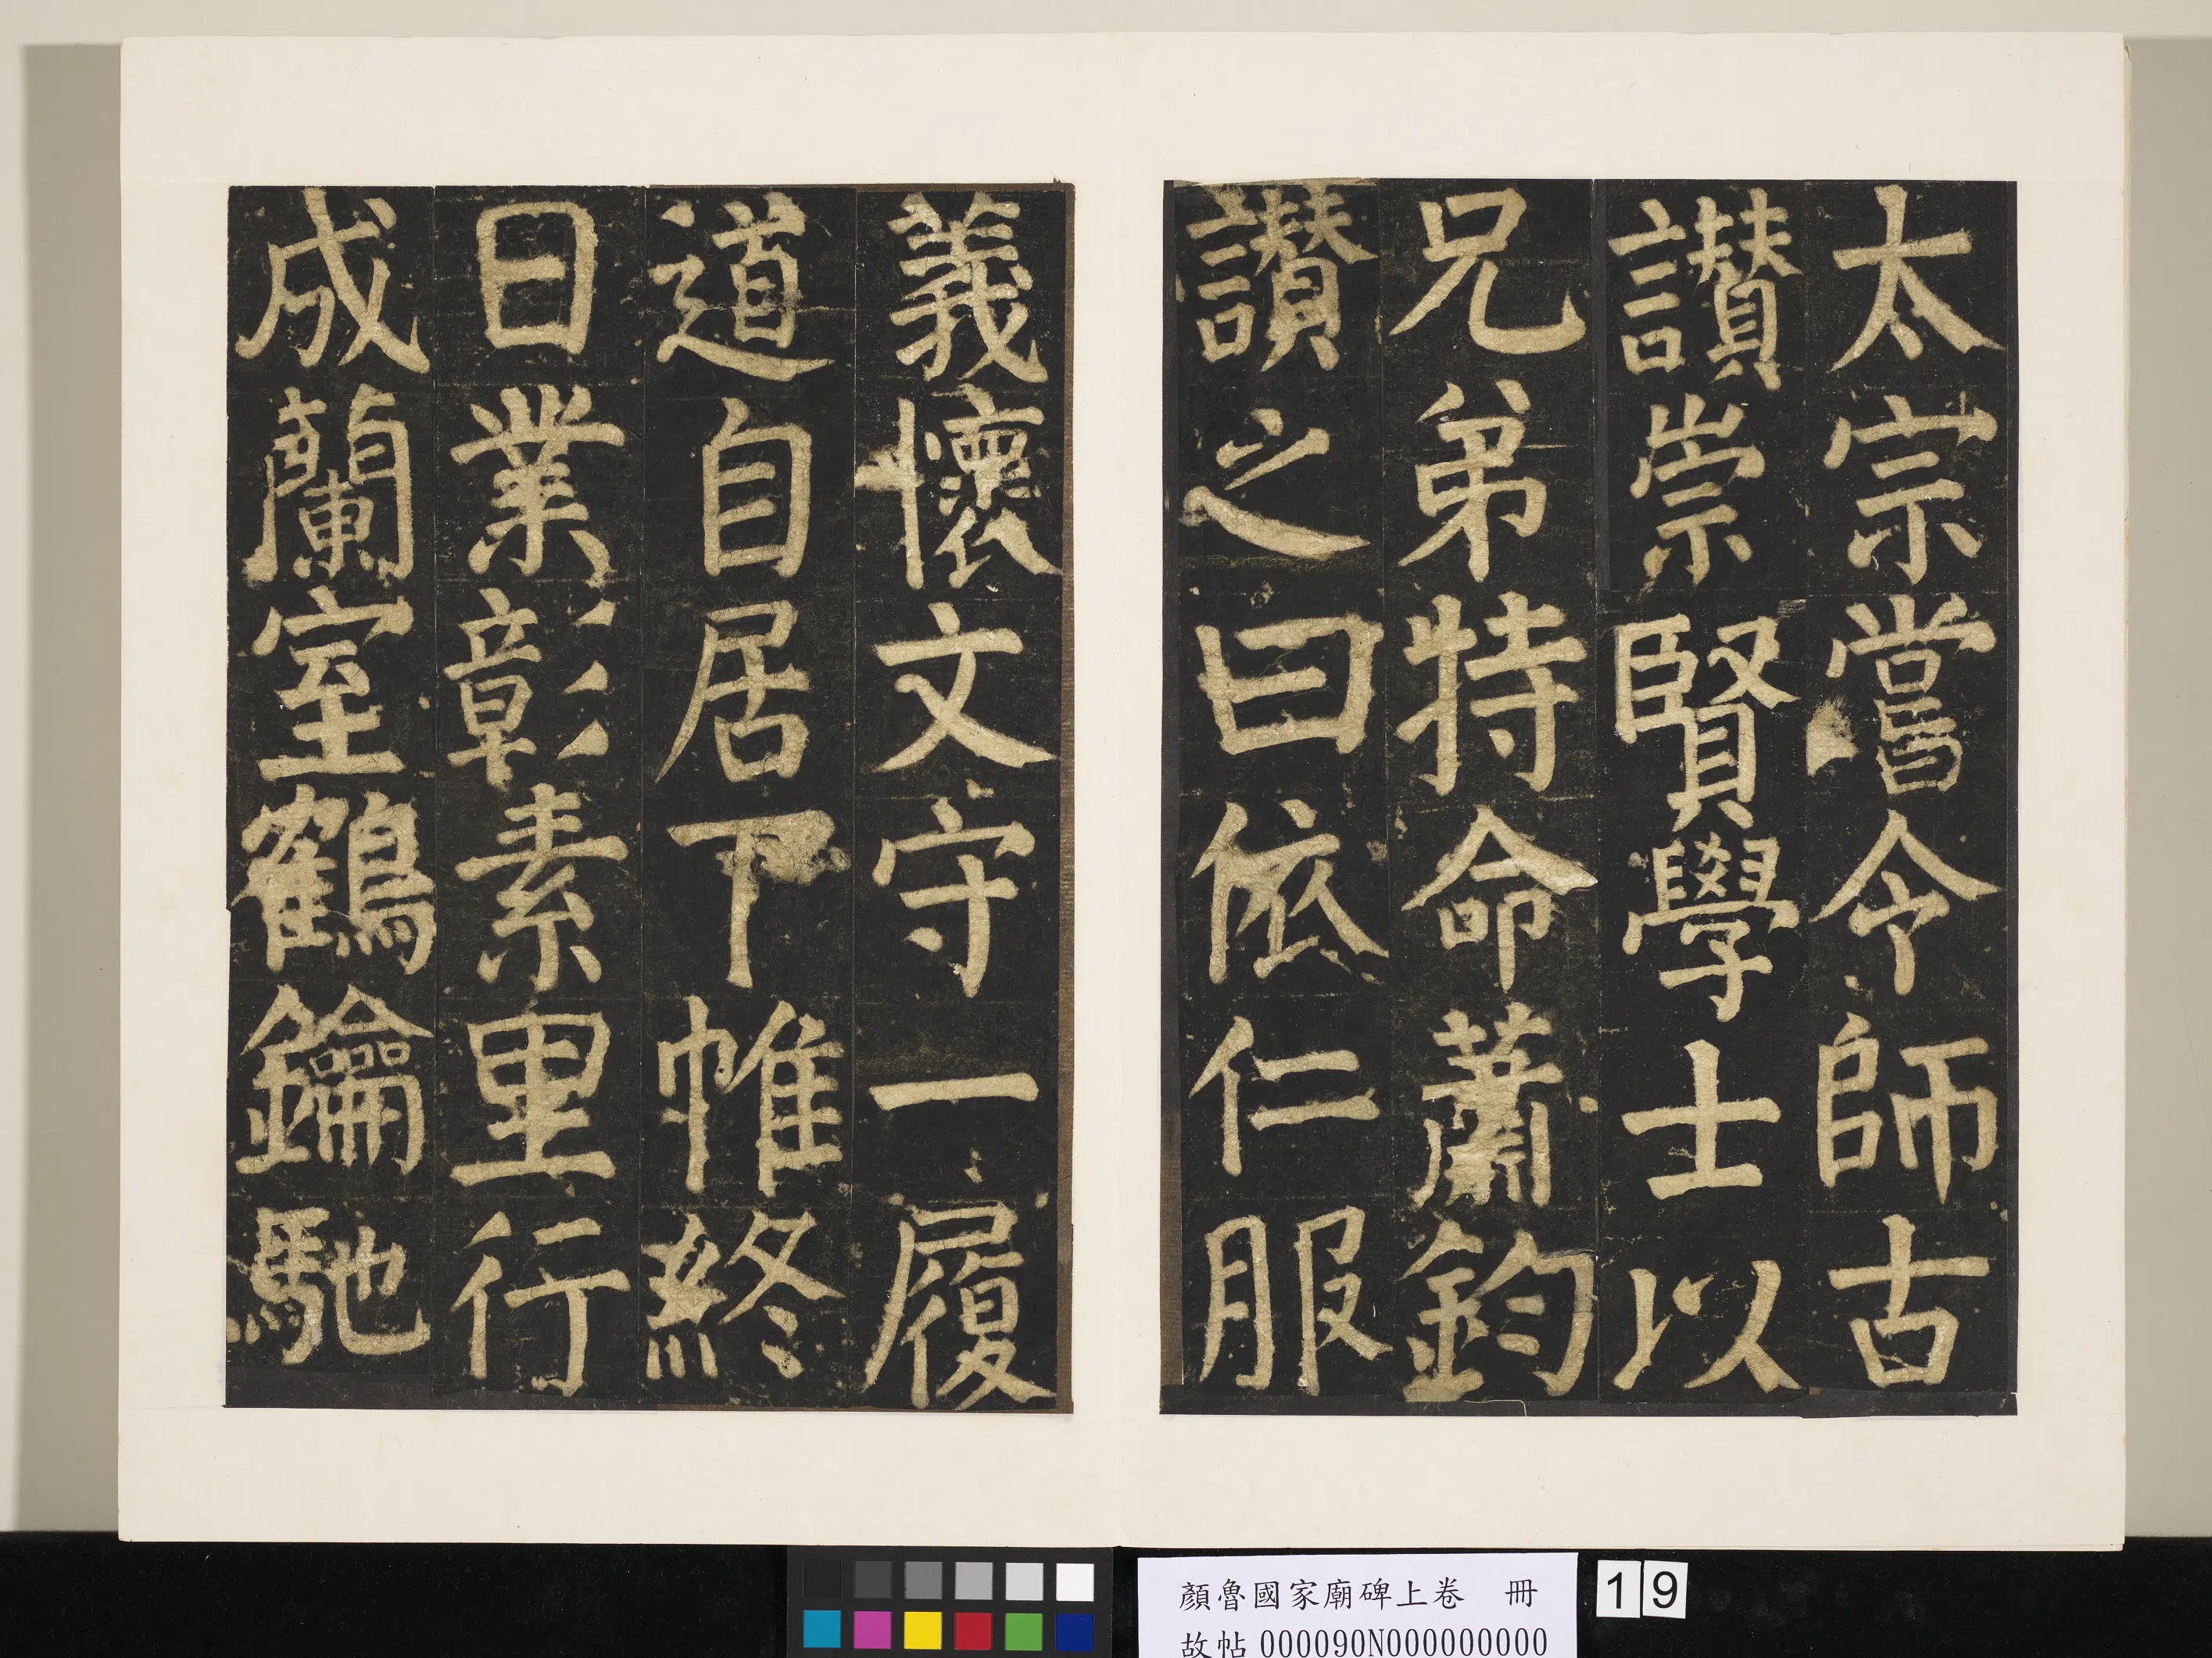 太宗嘗令師古
讃崇賢學士以
兄弟特命蕭鈞
讃之曰依仁服
義懷文守一履
道自居下帷終
日業彰素里行
成蘭室鶴鑰馳
顏魯國家廟碑上卷　冊
故帖 000090N000000000
19